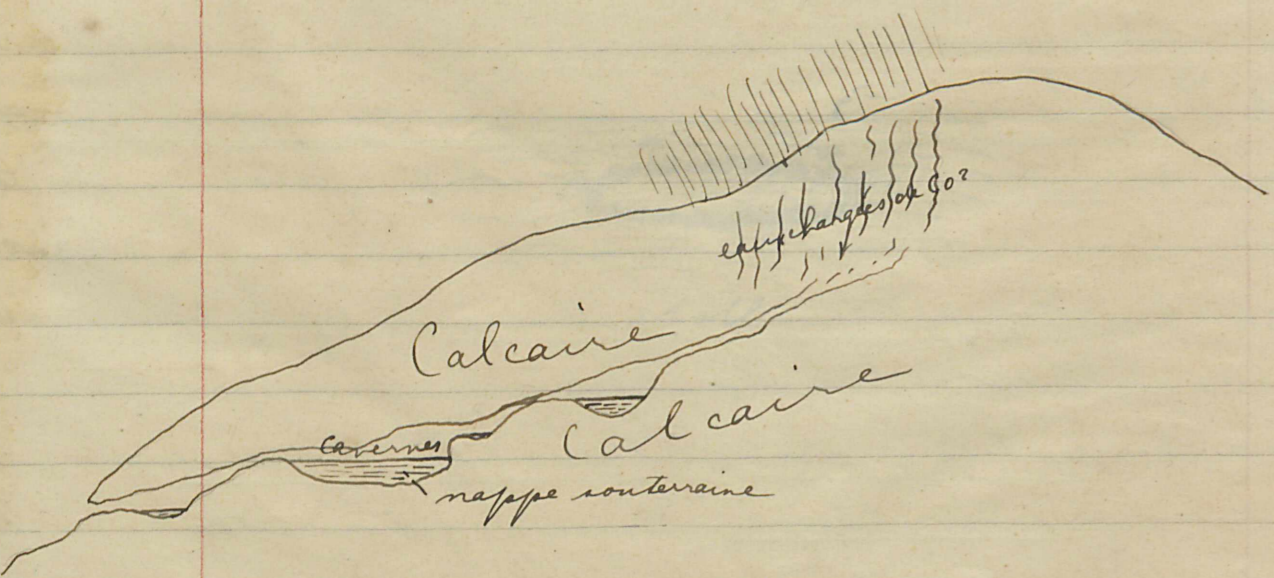 eaux chargées de CO²
Calcaire
Calcaire
Cavernes
nappe souterraine